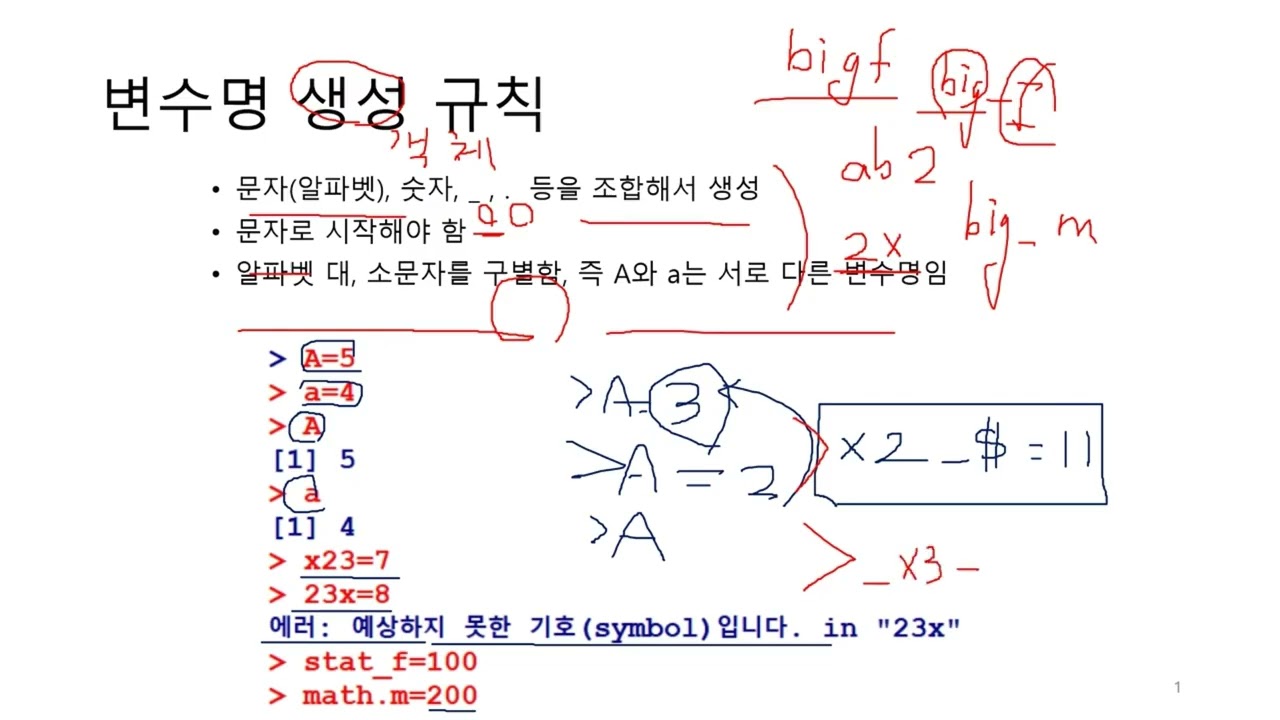 변수명 생성 규칙
객체
bigf
big_f
• 문자(알파벳), 숫자, _ , . 등을 조합해서 생성
ab2
• 문자로 시작해야 함
2x
big_m
• 알파벳 대, 소문자를 구별함, 즉 A와 a는 서로 다른 변수명임
> A=5
> a=4
> A
[1] 5
> a
[1] 4
> x23=7
> 23x=8
에러: 예상하지 못한 기호(symbol)입니다. in "23x"
> stat_f=100
> math.m=200
>A=3
>A=2
>A
> x2_$=11
> _x3_
1